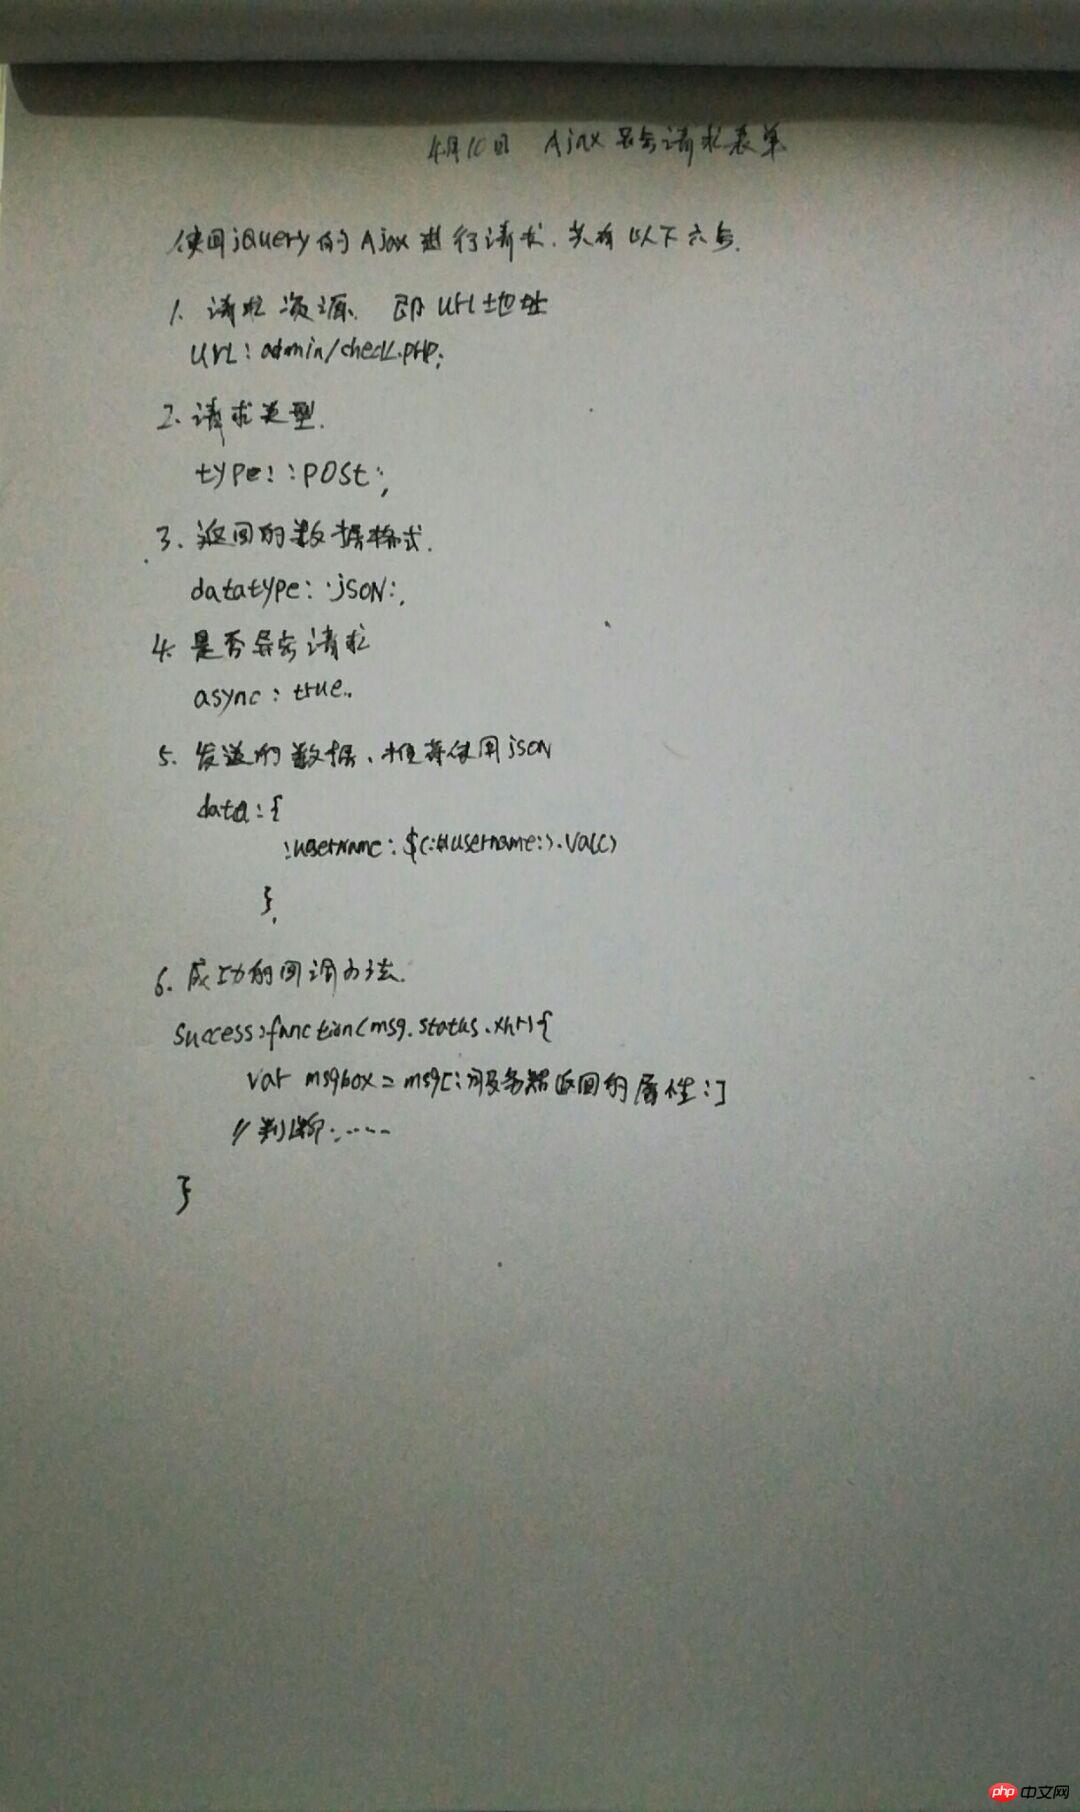 4月10日 Ajax异步请求表单
使用jQuery的Ajax进行请求.共有以下六步.
1. 请求资源. 即url地址
url: admin/check.php;
2. 请求类型.
type: 'post',
3. 返回的数据格式.
datatype: 'json',
4. 是否异步请求
async: true,
5. 发送的数据、推荐使用json
data: {
'username': $('#username').val()
},
6. 成功的回调方法.
success:function(msg.status.xhr){
var msgbox = msg['服务器返回的属性']
// 判断......
}
php 中文网